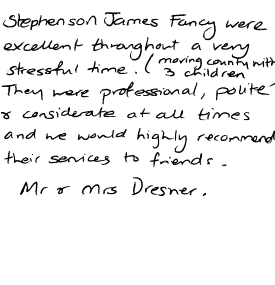 Stephenson James Fancy were
excellent throughout a very
stressful time. (moving county with
3 children
They were professional, polite
& considerate at all times
and we would highly recommend
their services to friends.
Mr & Mrs Dresner.